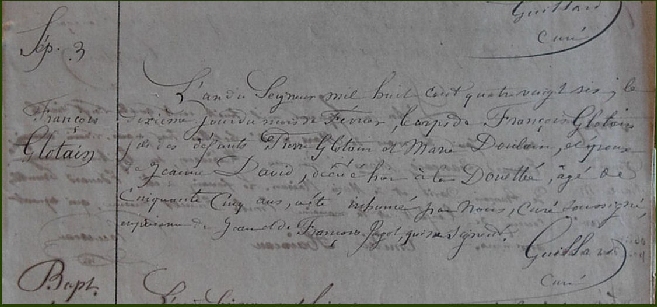 Guillard
Curé
Sép. 3
François
Glotain
L'an du Seigneur mil huit cent quatre vingt six, le
dixième jour du mois de Février, le corps de François Glotain
fils des défunts Pierre Glotain et Marie Doulain, et époux
de Jeanne David, décédé hier à la Dousthé, âgé de
Cinquante Cinq ans, a été inhumé par nous, Curé soussigné
en présence de Jean et de François, qui ne signent
Guillard
Curé
Bapt.